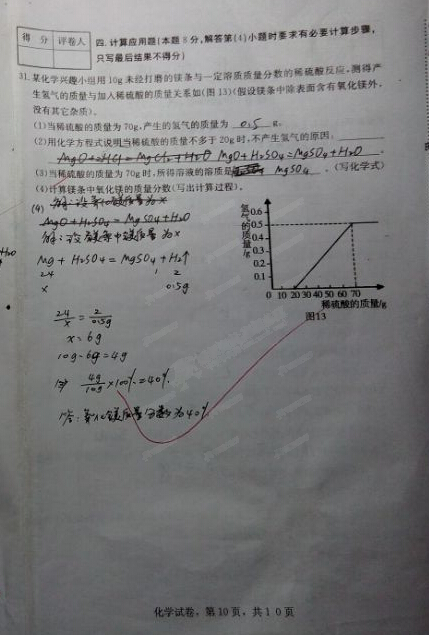 得 分 评卷人
四. 计算应用题(本题8分,解答第(4)小题时要求有必要计算步骤,
只写最后结果不得分)
31.某化学兴趣小组用10g未经打磨的镁条与一定溶质质量分数的稀硫酸反应,测得产
生氢气的质量与加入稀硫酸的质量关系如(图13)(假设镁条中除表面含有氧化镁外,
没有其它杂质)。
(1)当稀硫酸的质量为70g,产生的氢气的质量为 0.5 g。
(2)用化学方程式说明当稀硫酸的质量不多于20g时,不产生氢气的原因。
MgO+2HCl=MgCl2+H2O MgO+H2SO4=MgSO4+H2O
(3)当稀硫酸的质量为70g时,所得溶液的溶质是 MgSO4 。(写化学式)
(4)计算镁条中氧化镁的质量分数(写出计算过程)。
(4)
MgO+H2SO4=MgSO4+H2O
解:设镁条中镁质量为x
Mg+H2SO4=MgSO4+H2↑
24 2
x 0.5g
24/x=2/0.5g
x=6g
10g-6g=4g
4g/10g×100%=40%
答:氧化镁质量分数为40%
氢气的质量/g
0.6
0.5
0.4
0.3
0.2
0.1
0 10 20 30 40 50 60 70
稀硫酸的质量/g
图13
化学试卷, 第10页, 共10页